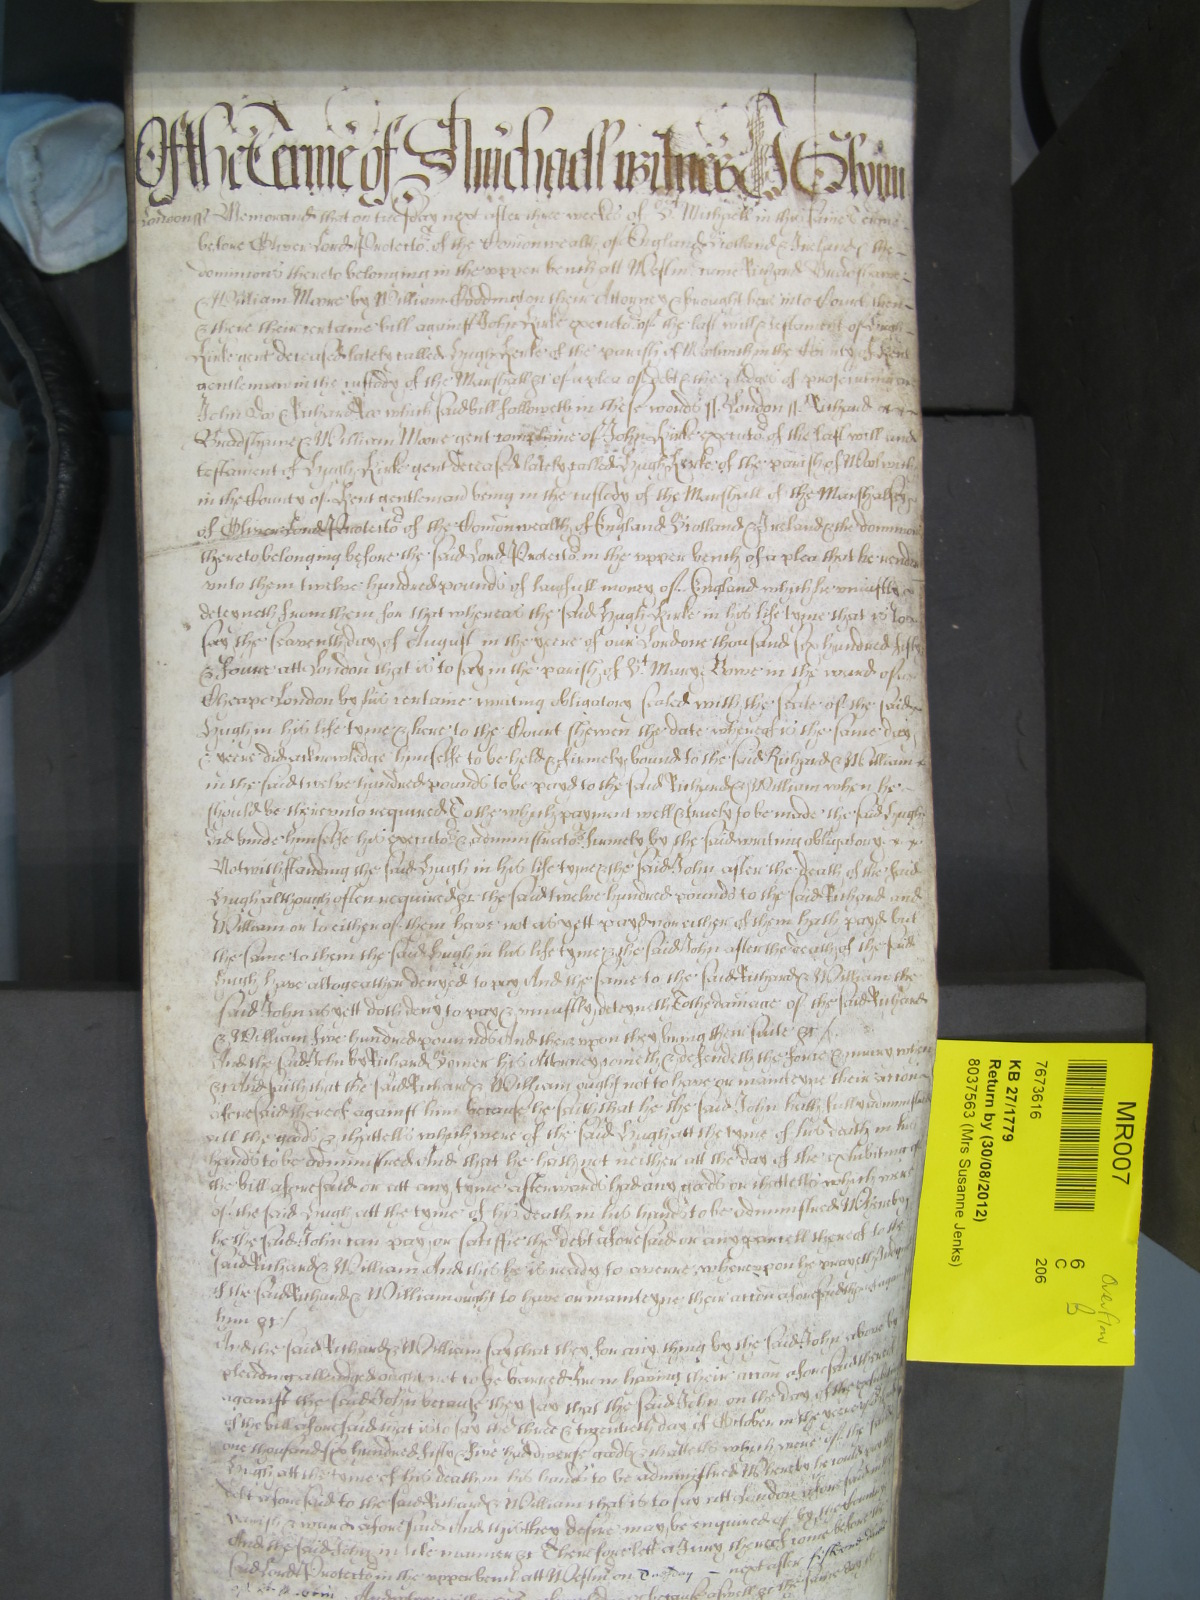 Of the Terme of S Michaell witnes J Glynn
London ss Memorand that on tuesday next after three weekes of St Michaell in this same terme
before Oliver Lord Protector of the Comonwealth of England Scotland & Ireland & the
dominions thereto belonging in the upper bench att Westm came Richard Bradshawe
& William Moore by William Coddington their Attorney & brought here into Court then
& there their certaine bill against John Kirke executor of the last will & testament of Hugh
Kirke gent deceased lately called Hugh Kerke of the parish of Wolwich in the County of Kent
gentleman in the custody of the Marshall &c of a plea of debt & the pledges of prosecuting are
John Doe & Richard Roe which said bill followeth in these words ss London ss Richard
Bradshawe & William Moore gent complaine of John Kirke executor of the last will and
testament of Hugh Kirke gent deceased lately called Hugh Kerke of the parish of Wolwich
in the County of Kent gentleman being in the custody of the Marshall of the Marshalsey
of Oliver Lord Protector of the Comonwealth of England Scotland & Ireland & the dominions
thereto belonging before the said Lord Protector in the upper bench of a plea that he render
unto them twelve hundred pounds of lawfull money of England which he uniustly
deteyneth from them for that whereas the said Hugh Kirke in his life tyme that is to
say the seaventh day of August in the yeere of our Lord one thousand six hundred fifty
& foure att London that is to say in the parish of St Mary Bowe in the ward of
Cheape London by his certaine writing obligatory sealed with the seale of the said
Hugh in his life tyme & here to the Court shewen the date whereof is the same day
& yeere did acknowledge himselfe to be held & firmely bound to the said Richard & William
in the said twelve hundred pounds to be payd to the said Richard & William when he
should be thereunto required To the which payment well & truely to be made the said Hugh
did binde himselfe his executors & administrators firmely by the said writing obligatory
Notwithstanding the said Hugh in his life tyme & the said John after the death of the said
Hugh although often required &c the said twelve hundred pounds to the said Richard and
William or to either of them have not as yett payd nor either of them hath payd but
the same to them the said Hugh in his life tyme & the said John after the death of the said
Hugh have altogeather denyed to pay And the same to the said Richard & William the
said John as yett doth deny to pay & uniustly deteyneth To the damage of the said Richard
& William five hundred pounds And thereupon they bring their suite &c
And the said John by Richard Comer his Attorney cometh & defendeth the force & iniury when
&c And saith that the said Richard & William ought not to have or manteyne their accon
aforesaid thereof against him because he saith that he the said John hath fully administred
all the goods & chattells which were of the said Hugh att the tyme of his death in his
hands to be administred And that he hath not neither att the day of the exhibiting of
the bill aforesaid or att any tyme afterwards had any goods or chattells which were
of the said Hugh att the tyme of his death in his hands to be administred Whereby
he the said John can pay or satisfie the debt aforesaid or any parcell thereof to the
said Richard & William And this he is ready to averre whereupon he prayeth Judgmt
if the said Richard & William ought to have or manteyne their accon aforesaid thereof against
him &c
And the said Richard & William say that they for any thing by the said John above by
pleading alledged ought not to be barred from having their accon aforesaid thereof
against the said John because they say that the said John on the day of the exhibiting
of the bill aforesaid that is to say the three & twentieth day of October in the yeere
one thousand six hundred fifty & five had diverse goods & chattells which were of the said
Hugh att the tyme of his death in his hands to be administred Whereby he could
debt aforesaid to the said Richard & William that is to say att London aforesaid in the
parish & ward aforesaid And this they desire may be enquired of by the Country
And the said John in like manner &c Therefore lett a Jury thereof come before the
said Lord Protector in the upper bench att Westm on Tuesday next after
MR007
7673616
KB 27/1779
Return by (30/08/2012)
8037563 (Mrs Susanne Jenks)
6
C
206
Overflow
B